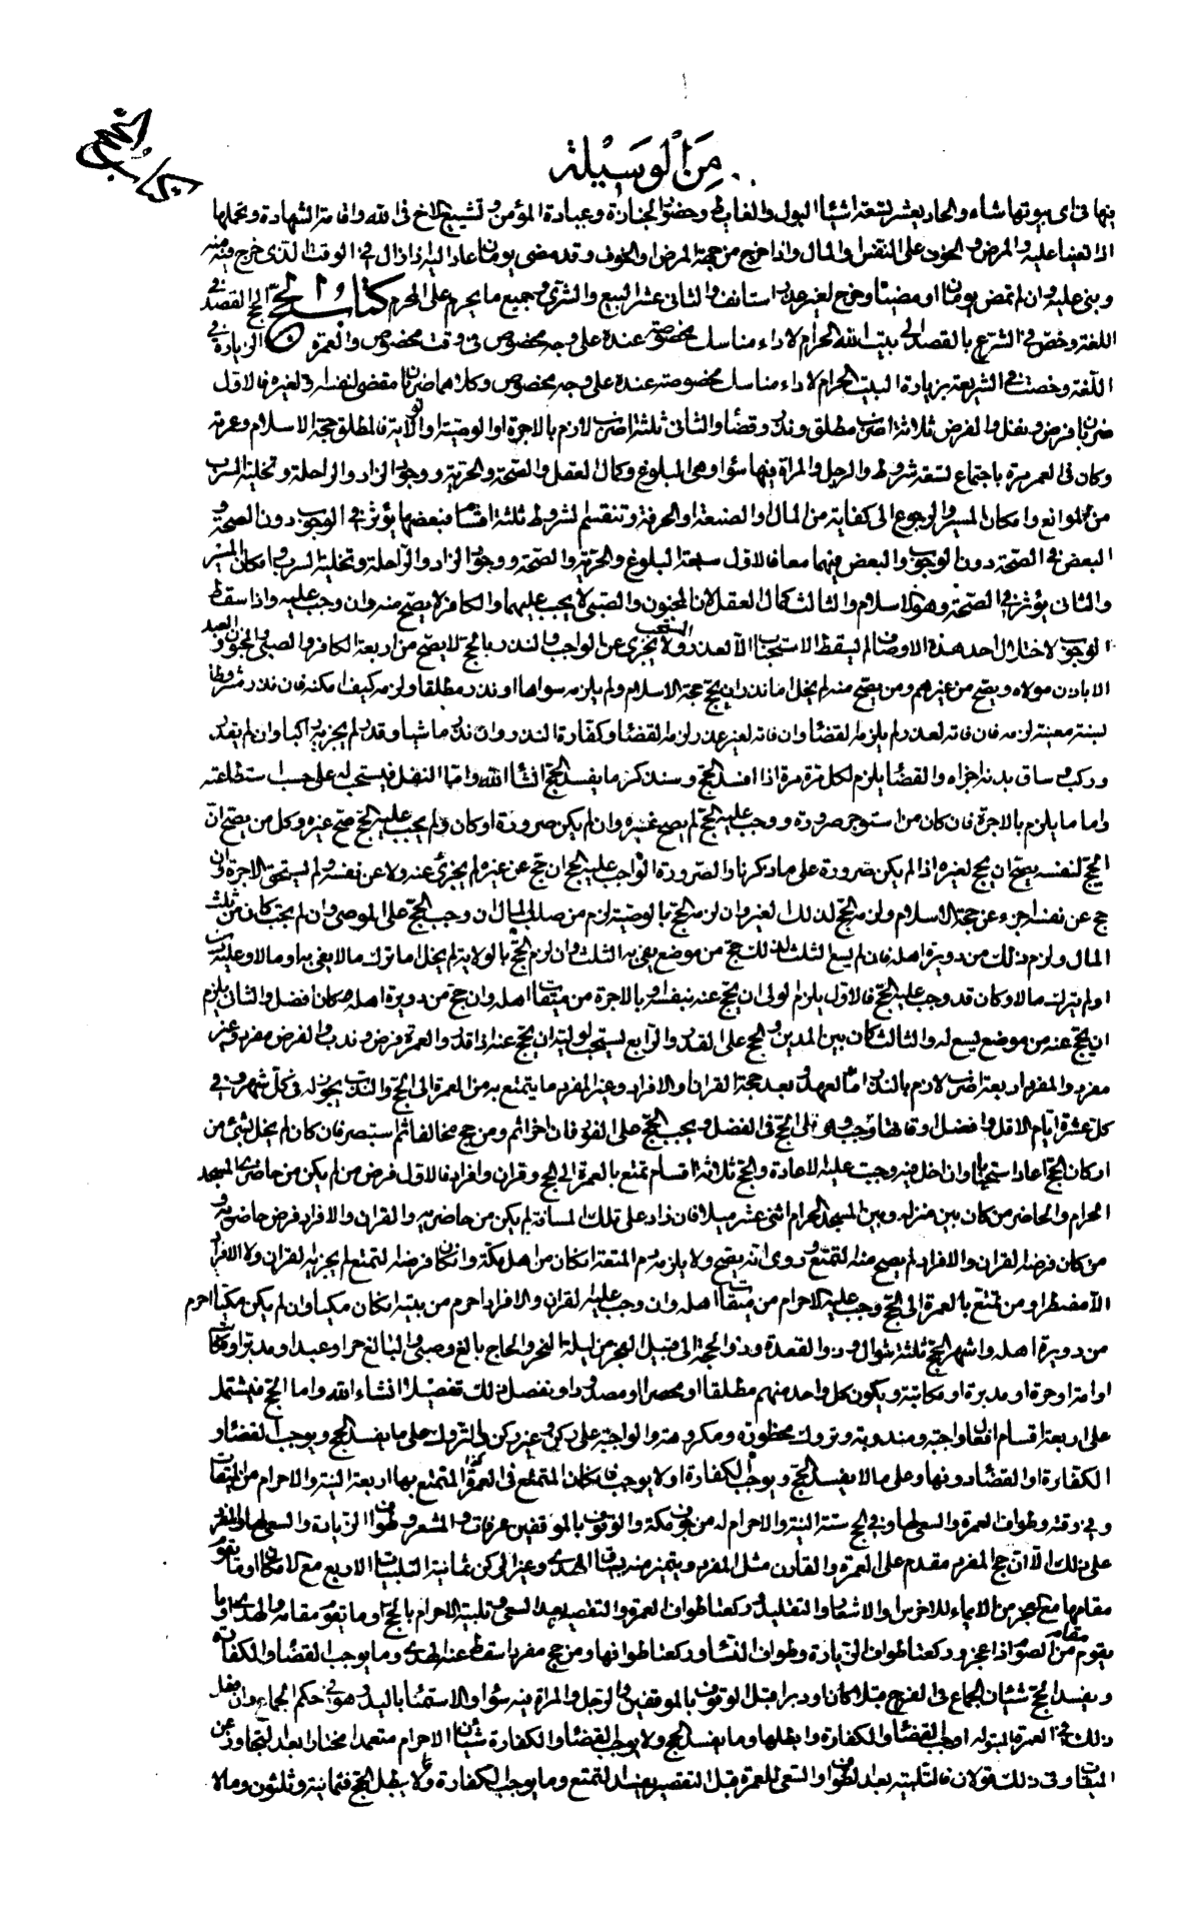 كتاب الحج
من الوسيلة
فيها في اى بيوتها شاء والحادى عشر تسعة اشياء البول والغايط وحضور الجنازة وعيادة المؤمن وتشييع الاخ في الله واقامة الشهادة وتحملها
اذا تعينا عليه والمرض والخوف على النفس والمال واذا خرج من جهة المرض او الخوف وقد مضى يومان عاد اليه اذا زال في الوقت الذى خرج فيه منه
وبنى عليه وان لم تمض يومان او مضيتا وخرج لغير عذر استانف والثانى عشر البيع والشرى وجميع ما يحرم على المحرم كتاب الحج الحج القصد في
اللغة وخص في الشرع بالقصد الى بيت الله الحرام لاداء مناسك مخصوصة عنده على وجه مخصوص في وقت مخصوص والعمرة الزيارة في
اللغة وخصت في الشريعة بزيارة البيت الحرام لاداء مناسك مخصوصة عنده على وجه مخصوص وكلاهما ضربان مقضى لنفسه ولغيره فالاول
ضربان فرض ونفل والفرض ثلاثة اضرب مطلق ونذر وقضاء والثانى ثلثة اضرب لازم بالاجرة او الوصية او الولاية فالمطلق حجة الاسلام وعمرته
وكان في العمر مرة باجتماع تسعة شروط والرجل والمراة فيها سواء وهى البلوغ وكمال العقل والصحة والحرية ووجود الزاد والراحلة وتخلية السرب
من الموانع وامكان المسير والرجوع الى كفاية من المال او الصنعة او الحرفة وتنقسم الشروط ثلثة اقسام فبعضها يؤثر في الوجوب دون الصحة و
البعض في الصحة دون الوجوب والبعض فيهما معا فالاول سبعة البلوغ والحرية والصحة ووجود الزاد والراحلة وتخلية السرب وامكان المسير
والثانى يؤثر في الصحة وهو الاسلام والثالث كمال العقل لان المجنون والصبى لا يجب عليهما والكافر لا يصح منه وان وجب عليه واذا سقط
الوجوب لاختلال احد هذه الاوصاف لم يسقط الاستحباب الا لعذر ولا يجزى المستحب عن الواجب والنذر بالحج لا يصح من اربعة الكافر والصبى والمجنون والعبد
الا باذن مولاه ويصح من غيرهم ومن يصح منه لم يخل اما نذر ان يحج حجة الاسلام ولم يلزمه سواها او نذر مطلقا ولزمه كيف امكنه فان نذر مشروطا
لسنة معينة لزمه فان فاته لعذر لم يلزمه القضاء وان فاته لغير عذر لزمه القضاء وكفارة النذر وان نذر ماشيا وقدر لم يجز به راكبا وان لم يقدر
وركب وساق بدنة اجزاه والقضاء يلزم لكل مرة مرة اذا افسد الحج وسنذكر ما يفسد الحج انشاء الله واما النفل فيستحب له على حسب استطاعته
واما ما يلزم بالاجرة فان كان من استوجر صرورة ووجب عليه الحج لم يصح عن غيره وان لم يكن صرورة او كان ولم يجب عليه الحج صح عن غيره وكل من يصح ان
يحج لنفسه يصح ان يحج لغيره اذا لم يكن صرورة على ما ذكرناه والصرورة الواجب عليه الحج ان حج عن غيره لم يجزئ عنه ولا عن نفسه ولم يستحق الاجرة وان
حج عن نفسه اجزء عن حجة الاسلام ولزمه الحج لذلك الغير وان لزمه الحج بالوصية لزم من صلب المال ان وجب الحج على الموصى وان لم يجب كان من ثلث
المال ولزم ذلك من دويرة اهله فان لم يسع الثلث لذلك حج من موضع يفى به الثلث وان لزم الحج بالولاية لم يخل اما ترك مالا يفى به او مالا وعليه دين
او لم يترك مالا وكان قد وجب عليه الحج فالاول يلزم الولى ان يحج عنه بنفسه او بالاجرة من ميقات اهله وان حج من دويرة اهله كان افضل والثانى يلزم
ان يحج عنه من موضع يسع له والثالث كان بين الدين والحج على القدر والرابع يستحب لوليه ان يحج عنه اذا قدر والعمرة فرض وندب والفرض مفرد وغير
مفرد والمفرد اربعة اضرب لازم بالنذر او العهد وبعد حجة القران والافراد وغير المفرد ما يتمتع به من العمرة الى الحج والندب يجوز له في كل شهر وفي
كل عشرة ايام لا اقل وافضل اوقاتها رجب وهو تلى الحج في الفضل ويجب الحج على الفور فان اخر اثم ومن حج مخالفا ثم استبصر فان كان لم يخل بشئ من
اركان الحج اعاد استحبابا وان اخل به وجبت عليه الاعادة والحج ثلاثة اقسام تمتع بالعمرة الى الحج وقران وافراد فالاول فرض من لم يكن من حاضرى المسجد
الحرام والحاضر من كان بين منزله وبين المسجد الحرام اثنى عشر ميلا فان زاد على تلك المسافة لم يكن من حاضريه والقران والافراد فرض حاضريه و
من كان فرضه القران والافراد لم يصح منه التمتع وروى انه يصح ولا يلزمه دم المتعة ان كان من اهل مكة وان كان فرضه التمتع لم يجز به القران ولا الافراد
الا مضطرا ومن تمتع بالعمرة الى الحج وجب عليه الاحرام من ميقات اهله وان وجب عليه القران والافراد احرم من بيته ان كان مكيا وان لم يكن مكيا احرم
من دويرة اهله واشهر الحج ثلثة شوال وذو القعدة وذو الحجة الى قبيل الفجر من ليلة النحر والحاج بالغ وصبى والبالغ حر او عبد او مدبر او مكاتب
او امة او حرة او مدبرة او مكاتبة ويكون كل واحد منهم مطلقا او محصرا او مصدودا ونفصل ذلك تفصيلا انشاء الله واما الحج فيشتمل
على اربعة اقسام افعال واجبة ومندوبة وتروك محظورة ومكروهة والواجبة على ركن وغير ركن والتروك على ما يفسد الحج ويوجب القضاء و
الكفارة او القضاء دونها وعلى ما لا يفسد الحج ويوجب الكفارة او لا يوجب فاركان المتمتع في العمرة المتمتع بها اربعة النية والاحرام من الميقات
وفي وقته وطواف العمرة والسعى لها وفي الحج ستة النية والاحرام له من جوف مكة والوقوف بالموقفين عرفات والمشعر وطواف الزيارة والسعى لها والمفرد
على ذلك الا ان حج المفرد مقدم على العمرة والقارن مثل المفرد ويتميز منه بسياق الهدى وغير الركن ثمانية التلبيات الاربع مع الامكان او ما يقوم
مقامها مع العجز من الايماء للاخرس او الاشعار او التقليد وركعتا طواف العمرة والتقصير بعد السعى وتلبية الاحرام بالحج او ما يقوم مقامه والهدى او ما
يقوم مقامه من الصوم اذا عجز وركعتا طواف الزيارة وطواف النساء وركعتا طوافها ومن حج مفردا سقط عنه الهدى وما يوجب القضاء والكفارة
ويفسد الحج شيئان الجماع في الفرج قبلا كان او دبرا قبل الوقوف بالموقفين والرجل والمراة فيه سواء والاستمناء باليد وهو في حكم الجماع وان فعل
ذلك في العمرة المبتولة اوجب القضاء والكفارة وابطلها وما يفسد الحج ولا يوجب القضاء والكفارة شيئان الاحرام متعمدا مختارا بعد التجاوز عن
الميقات وفي ذلك قولان والتلبية بعد الطواف والسعى للعمرة قبل التقصير يفسد التمتع وما يوجب الكفارة ولا يبطل الحج فثمانية وثلثون وما لا